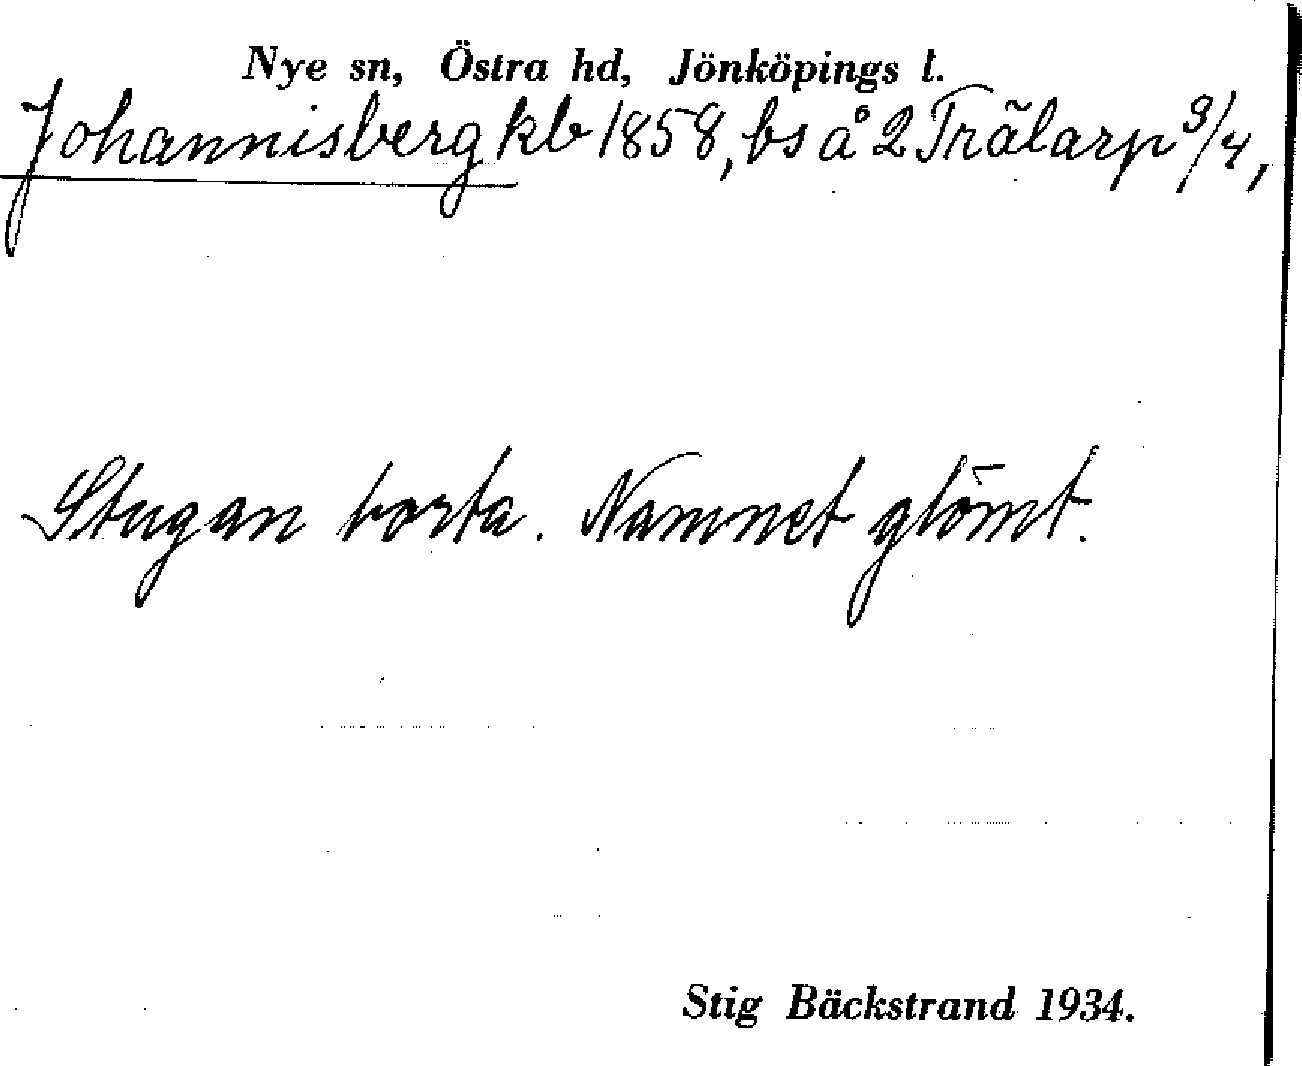 Nye sn, Östra hd, Jönköpings l.
Johannisberg kb 1858, bs å 2 Trälarp 3/4,
Stugan borta. Namnet glömt.
Stig Bäckstrand 1934.